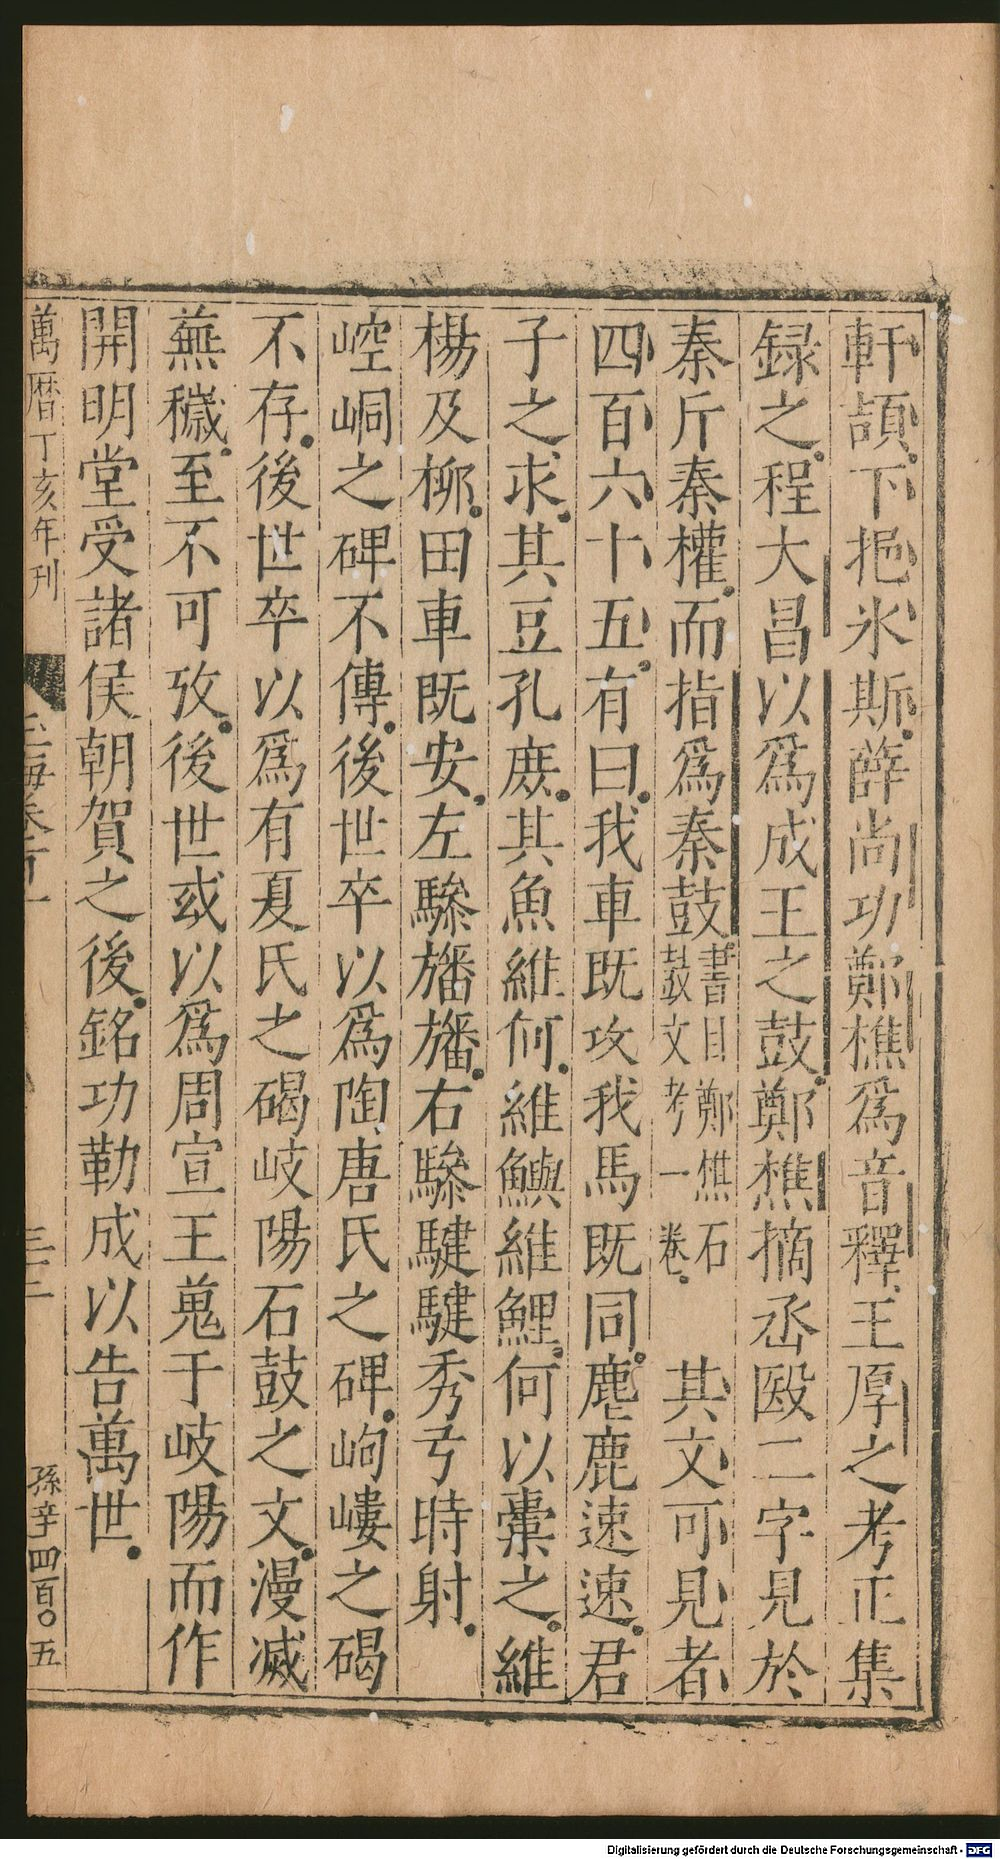 軒頡下挹氷斯薛尚功鄭樵爲音釋王厚之考正集
録之程大昌以爲成王之鼓鄭樵摘丞殹二字見於
秦斤秦權而指爲秦鼓書目鄭樵石鼓文考一卷其文可見者
四百六十五有曰我車既攻我馬既同麀鹿速速君
子之求其豆孔庶其魚維何維鱮維鯉何以橐之維
楊及柳田車既安左驂旛旛右驂騝騝秀弓時射
崆峒之碑不傳後世卒以爲陶唐氏之碑岣嶁之碣
不存後世卒以爲有夏氏之碣岐陽石鼓之文漫滅
蕪穢至不可攷後世或以爲周宣王蒐于岐陽而作
開明堂受諸侯朝賀之後銘功勒成以告萬世
萬曆丁亥年刊
玉海卷百一
三十二
孫辛四百〇五
Digitalisierung gefördert durch die Deutsche Forschungsgemeinschaft - DFG